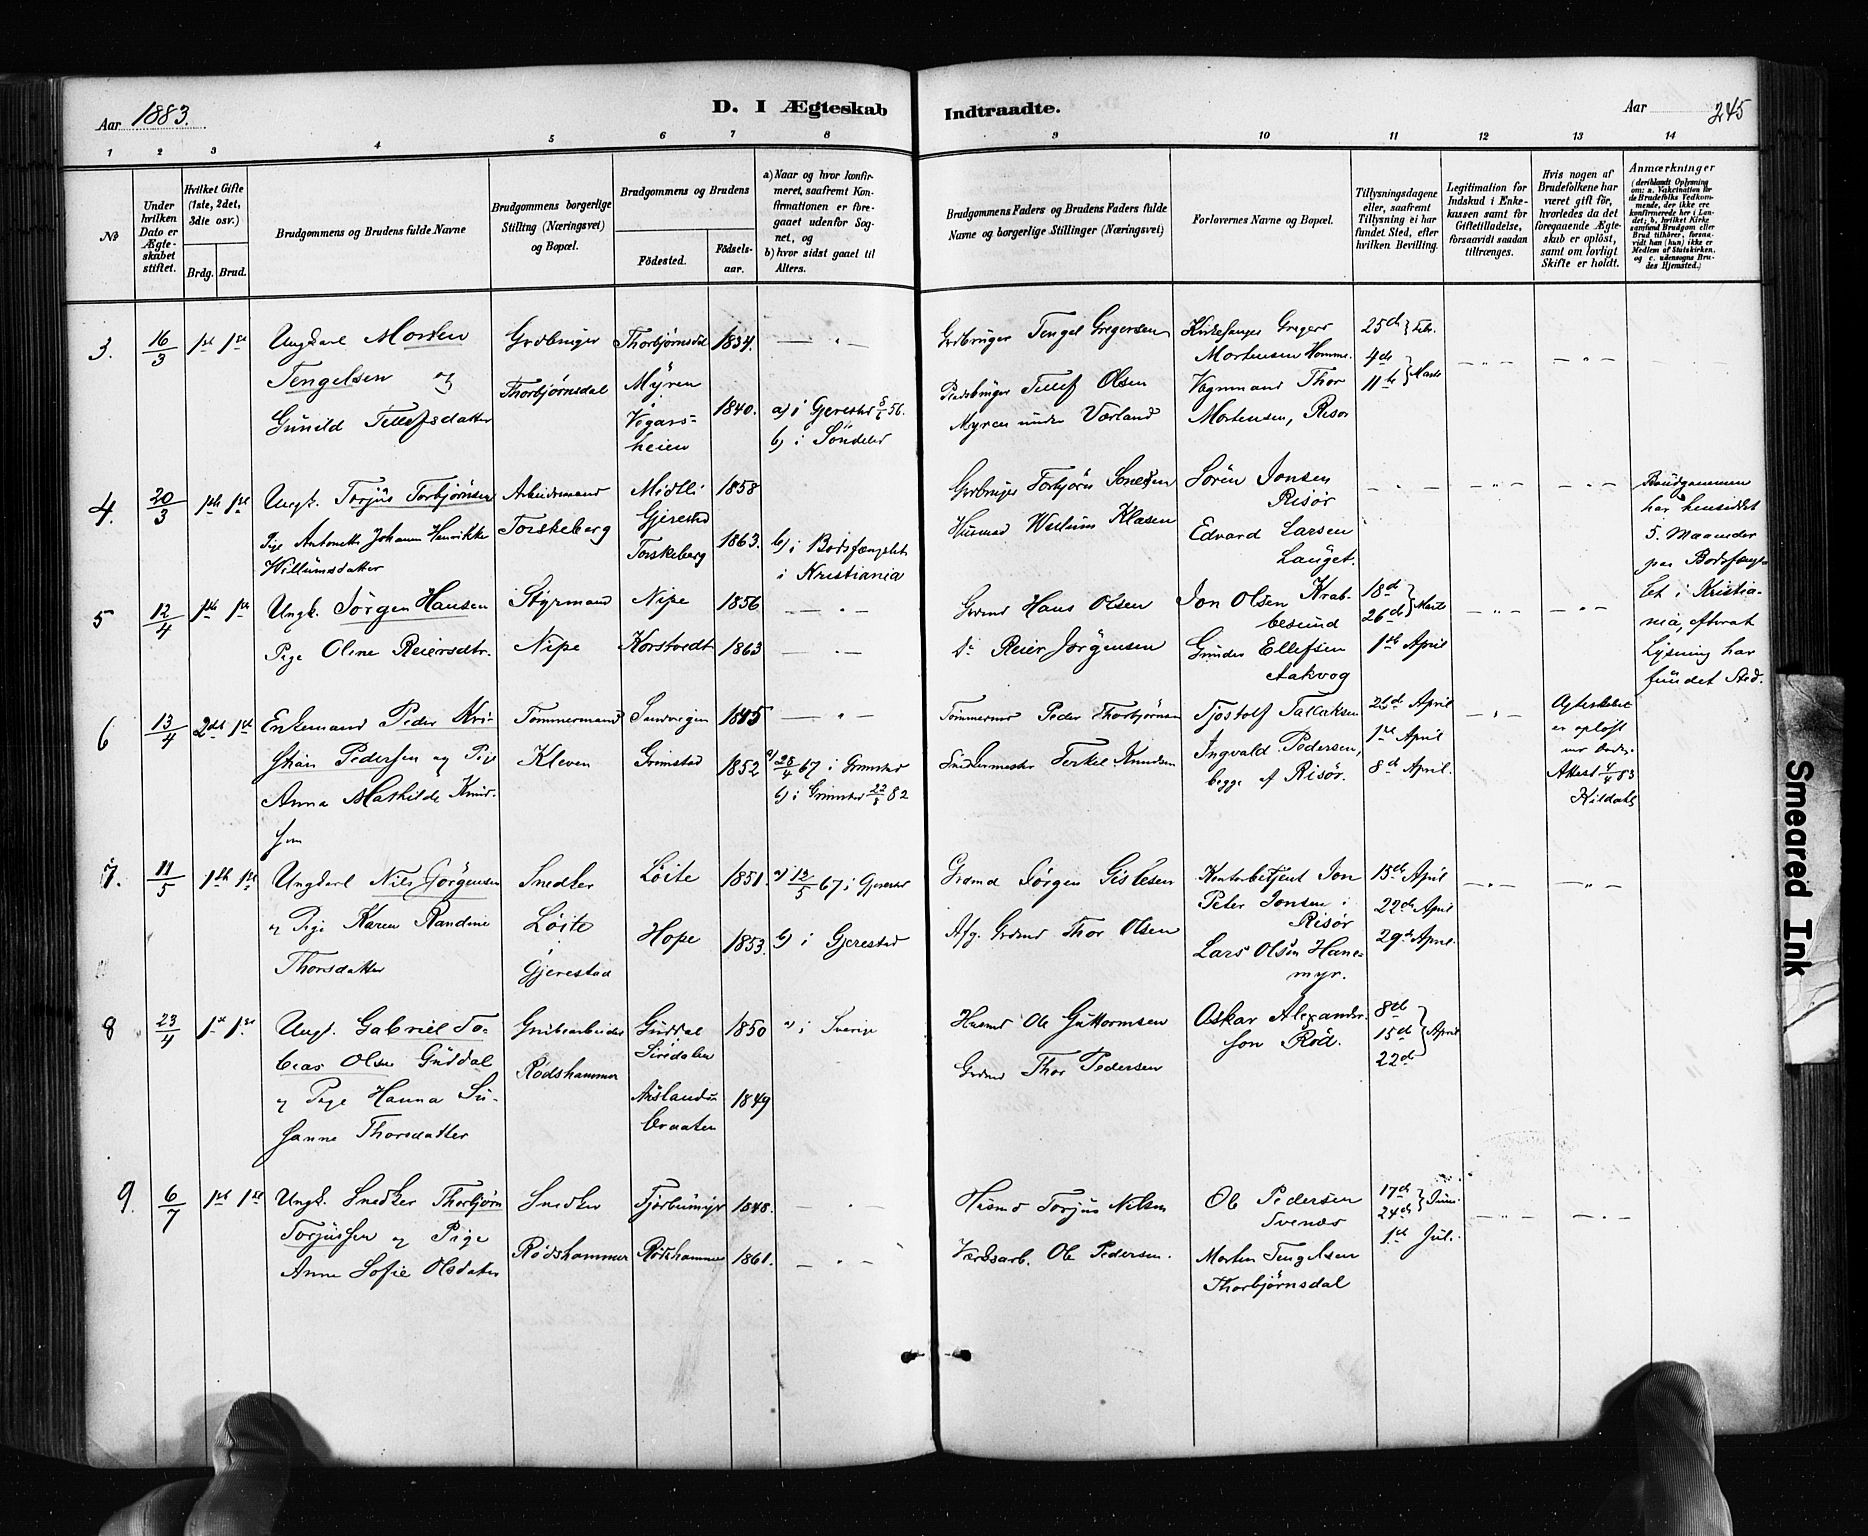 Aar 1883.
D. I Ægteskab
Indtraadte.
Aar
245
1 2 3 4 5 6 7 8 9 10 11 12 13 14
No
Under hvilken Dato er Ægteskabet stiftet.
Hvilket Gifte (1ste, 2det, 3die osv.)
Brdg. Brud.
Brudgommens og Brudens fulde Navne
Brudgommens borgerlige Stilling (Næringsvei) og Bopæl.
Brudgommens og Brudens
Födested.
Födselsaar.
a) Naar og hvor konfirmeret, saafremt Konfirmationen er foregaaet udenfor Sognet, og
b) hvor sidst gaaet til Alters.
Brudgommens Faders og Brudens Faders fulde Navne og borgerlige Stillinger (Næringsvei)
Forlovernes Navne og Bopæl.
Tillysningsdagene eller, saafremt Tillysning ei har fundet Sted, efter hvilken Bevilling.
Legitimation for Indskud i Enkekassen samt for Giftetilladelse, forsaavidt saadan tiltrænges.
Hvis nogen af Brudefolkene har været gift för, hvorledes da det foregaaende Ægteskab er oplöst, samt om lovligt Skifte er holdt.
Anmærkninger
(deriblandt Oplysning om: a. Vakcination for de Brudefolks Vedkommende, der ikke ere konfirmerede her i Landet; b, hvilket Kirkesamfund Brudgom eller Brud tilhörer, forsaavidt han (hun) ikke er Medlem af Statskirken, og c. udensogns Brudes Hjemsted.)
3. 16/3 1ste 1ste
Ungkarl Morten
Tengelsen og
Gunild Tellefsdatter
Grdbruger
Thorbjørnsdal
Thorbjørnsdal 1834.
Myren i Vegarsheien 1840.
a) i Gjerestad 56.
b) i Söndeled
Grdbruger Tengel Gregersen
Pladsbruger Tellef Olsen
Myren under Værland
Kirkesanger Gregers
Mortensen Homme.
Vognmand Thor
Mortensen, Risør
25de Febr.
4de
11te Marts
4. 20/3 1ste 1ste
Ungk. Torjus Torbjörnsen
Pige Antonette Johanne Henrikke
Willumsdatter
Arbeidsmand
Torskeberg
Midtli
Gjerestad 1858
Torskeberg 1863.
b) i Bodsfængslet
i Kristiania
Grdbruger Torbjörn
Husmd Willum Klasen
Sören Jonsen
Risör
Edvard Larsen
Lauget.
Brudgommen
har hensiddet
5. Maaneder
paa Bodsfængslet
i Kristiania,
efterat
Lysning har
fundet Sted.
5 12/4 1ste 1ste
Ungk. Jörgen Hansen
Pige Oline Reiersdtr.
Styrmand
Nipe
Nipe 1856
Korstvedt 1863
Grdmd Hans Olsen
do Reier Jörgensen
Jon Olsen Krabbesund
Gunder Ellefsen
Aakvog
18de
26de Marts
1ste April
6 13/4 2det 1ste
Enkemand Peder Kristian
Pedersen og Pige
Anna Mathilde Knudsen
Tømmermand
Kleven
Sandvigen 1845
Grimstad 1852
a) 28/4 67 i Grimstad
b) i Grimstad 82
Tømmermd Peder Thorbjørnsen
Snedkermester Terkel Knudsen
Tjostolf Tallaksen
Ingvald Pedersen,
begge af Risör.
26de April
1ste April
8de April.
Ægteskabet
er opløst
Attest 4/4 83
7. 11/5 1ste 1ste
Ungkarl Nils Jörgensen
og Pige Karen Randine
Thorsdatter
Snedker
Löite
i
Gjerestad
Löite 1851.
Hope 1853.
a) 12/5 67 i Gjerestad
b) i Gjerestad
Grdmd Jörgen Gislesen
Afg. Grdmd Thor Olsen
Kontorbetjent Jon
Peter Jonsen i
Risör
Lars Olsen Hanemyr.
15de April
22de April
29de April.
8 23/4 1ste 1ste
Ungk. Gabriel Tobias
Olsen Guddal
og Pige Hanna Susanne
Thorsdatter
Grubearbeider
Rødshammer
Guddal
Siredalen 1850
Aaslandsbraaten 1849
a) i Sverige
Husmd Ole Guttormsen
Grdmd Thor Pedersen
Oskar Alexanderson
Rød.
8de
15de April
22de
9. 6/7 1ste 1ste
Ungk. Snedker Thorbjørn
Torjussen og Pige
Anne Sofie Olsdatter
Snedker
Rødshammer
1848.
Rødshammer 1861.
Husmd Torjus Nilsen
Værdsarb. Ole Pedersen.
Ole Pedersen
Tvenæs
Morten Tengelsen
Thorbjørnsdal
17de
24de Juni
1ste Juli
Smeared Ink